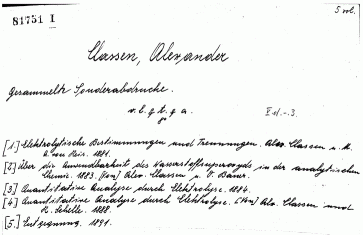 5 vol.
81751 I
Classen, Alexander
Gesammelte Sonderabdrucke.
v. l. g. t. g. a.
[1.] Elektrolytische Bestimmungen und Trennungen. Alex. Classen u. M.
A. von Reis. 1881.
[2] Über die Anwendbarkeit des Wasserstoffsuperoxyds in der analytischen
Chemie. 1883. [Von] Alex. Classen u. O. Bauer.
[3] Quantitative Analyse durch Elektrolyse. 1884.
[4] Quantitative Analyse durch Elektrolyse. [Von] Alex. Classen und
R. Schelle. 1888.
[5.] Entgegnung. 1891.